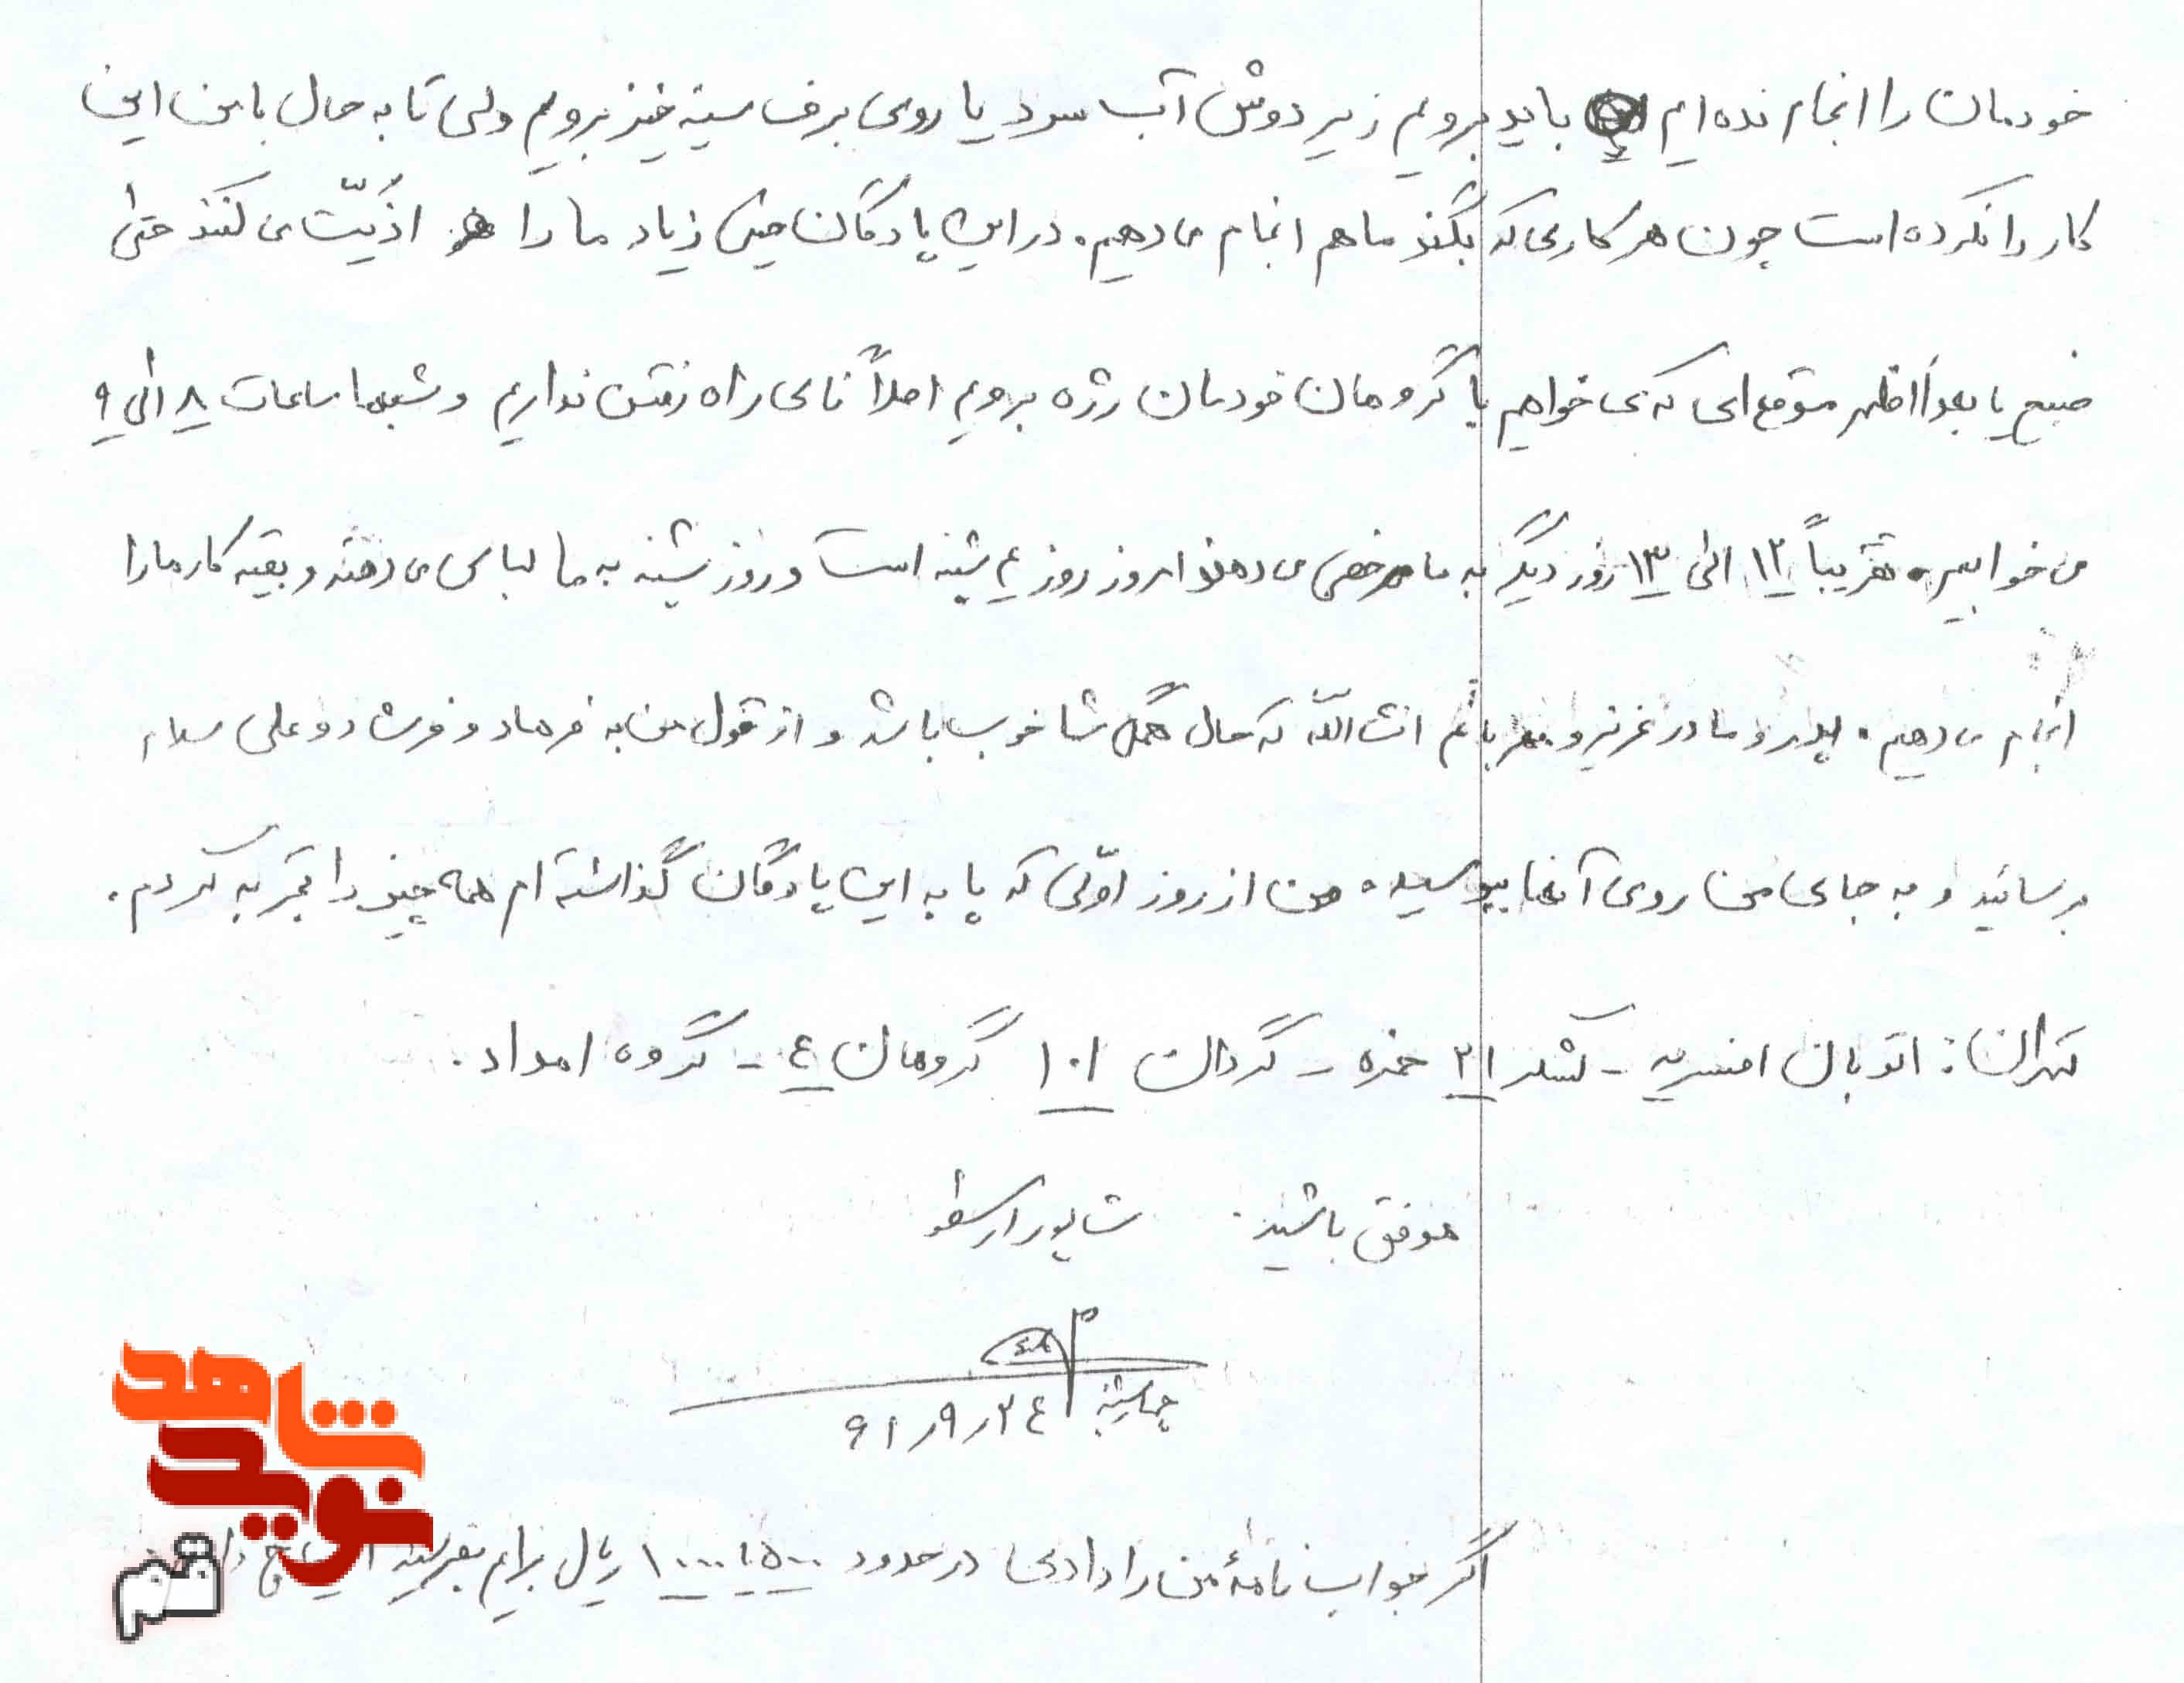 خودمان را انجام نده ایم باید برویم زیر دوش آب سرد یا روی برف سینه خیز برویم ولی تا به حال با من این
کار را نکرده است چون هر کاری که بگند ما هم انجام می دهیم. در این پادگان خیلی زیاد ما را اذیّت می کنند حتی
صبح یا بعداً ظهر موقع ای که می خواهیم با گروهان خودمان رژه برویم اصلاً نای راه رفتن نداریم و شبها ساعات ۸ الی ۹
می خوابیم. تقریباً ۱۲ الی ۱۳ روز دیگر به ما مرخصی می دهند امروز روز ۴ شنبه است و روز شنبه به ما لباس می دهند و بقیه کارها را
انجام می دهیم. پدر و مادر عزیز و مهربانم انشاالله که حال همگی شما خوب باشد و از قول من به فرهاد و فرشاد و علی سلام
برسانید و به جای من روی آنها ببوسید. من از روز اوّلی که پا به این پادگان گذاشته ام همه چیز را تجربه کردم.
تهران: اتوبان افسریه - لشکر ۲۱ حمزه - گردان ۱۰۱ گروهان ٤ - گروه امداد.
موفق باشید. شاپور ارسطو
چهارشنبه ۲٤ر۹ر۶۱
اگر جواب نامهٔ من را دادی در حدود ۵۰۰ تا ۱۰۰۰ ریال برایم بفرستید
شاهد
نوید
قم